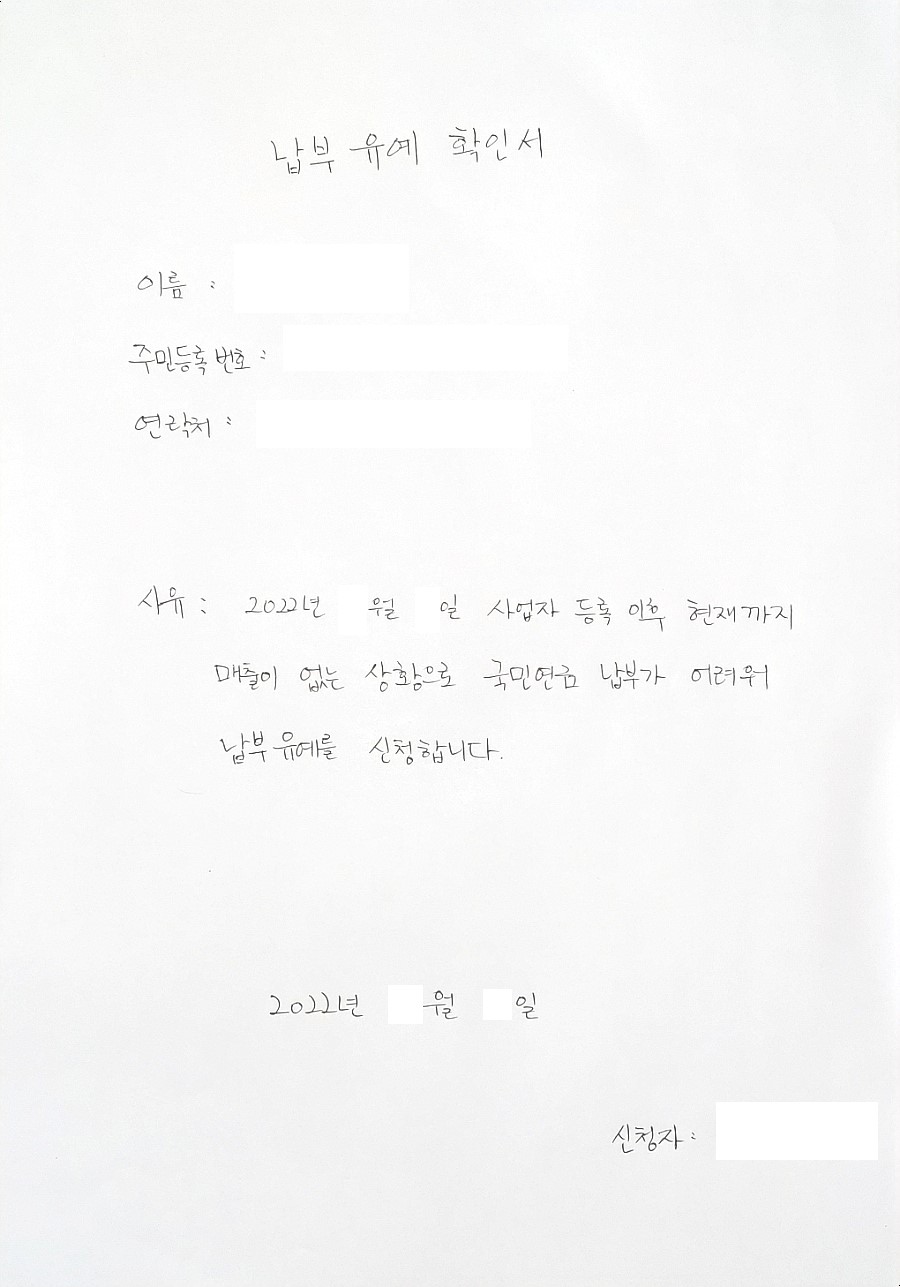 납부 유예 확인서
이름 :
주민등록번호 :
연락처 :
사유 : 2022년 월 일 사업자 등록 이후 현재까지
매출이 없는 상황으로 국민연금 납부가 어려워
납부유예를 신청합니다.
2022년 월 일
신청자 :